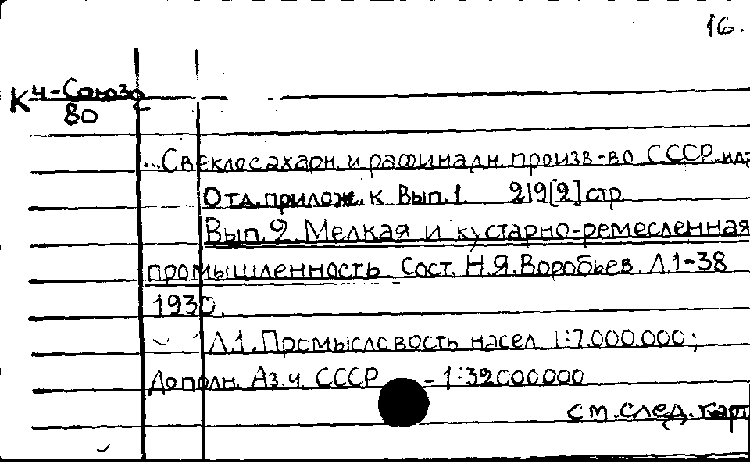 16.
К Ч-Союз
80
..Свеклосахарн. и рафинадн. произв-во СССР. изд
Отд. прилож. к Вып. 1. 219[2] стр
Вып. 2. Мелкая и кустарно-ремесленная
промышленность. Сост. Н.Я. Воробьев. Л. 1-38
1930.
Л. 1. Промысловость насел. 1:7.000.000;
Дополн. Аз.ч. СССР - 1:32000000
см. след. карт